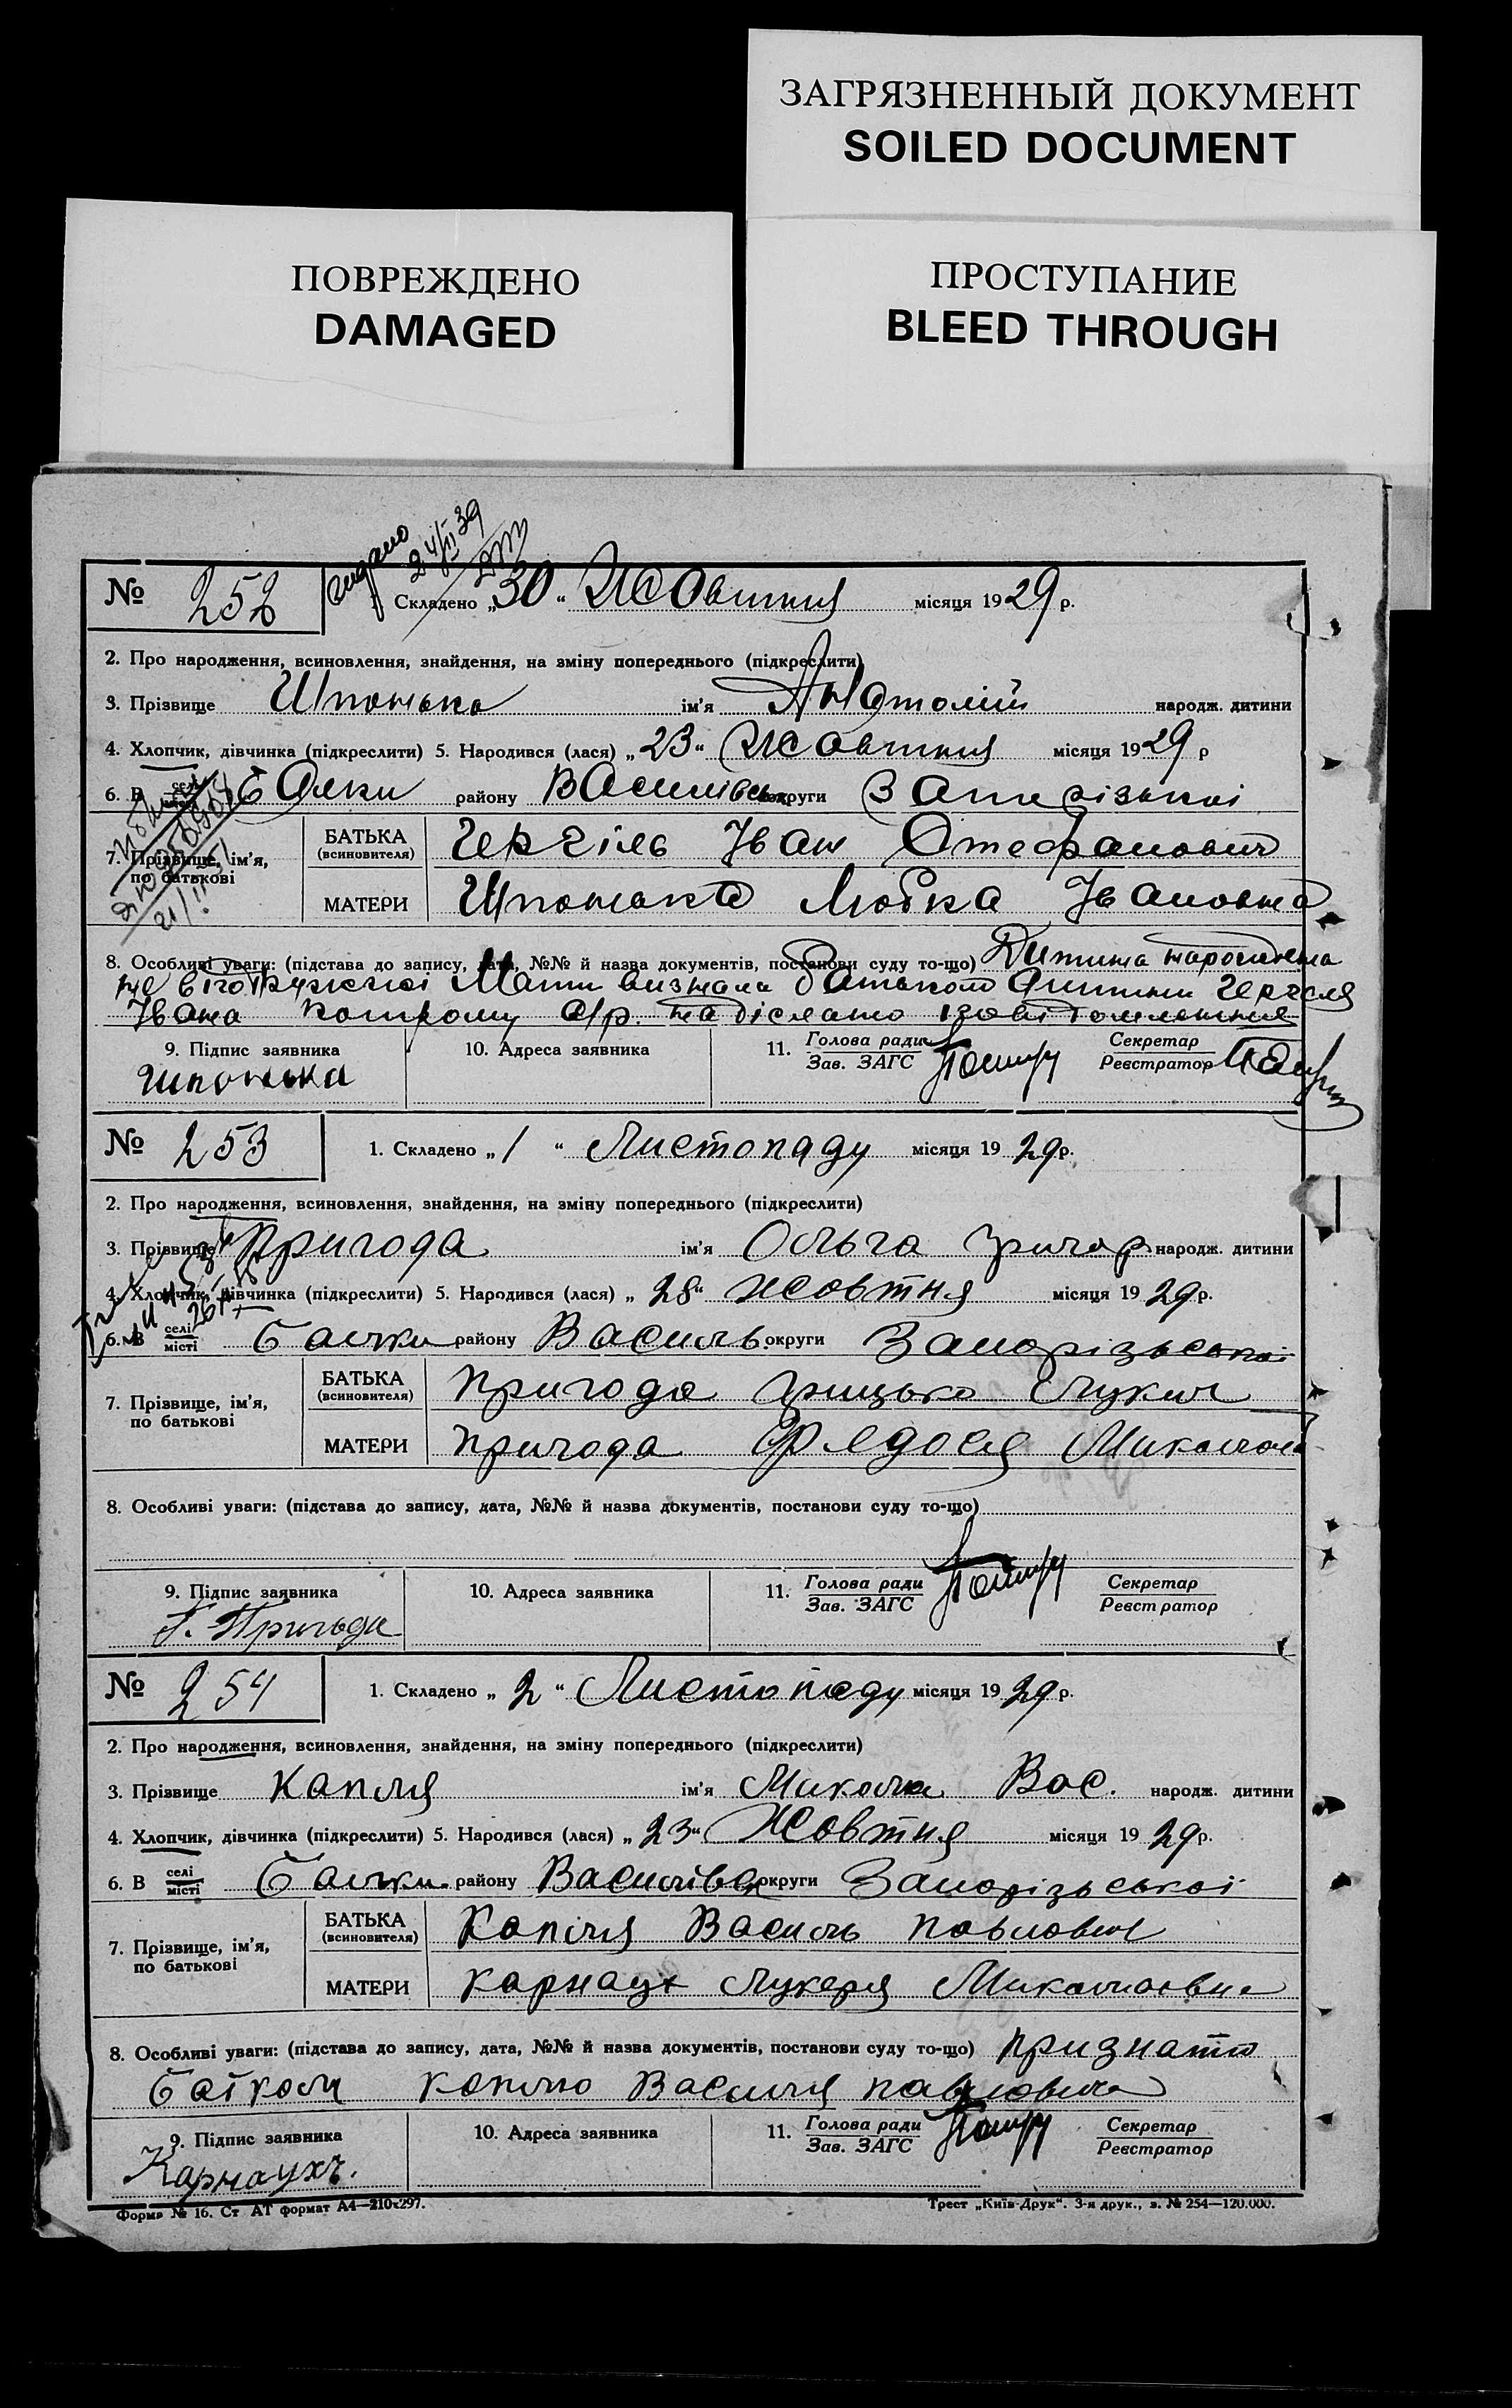 ЗАГРЯЗНЕННЫЙ ДОКУМЕНТ
SOILED DOCUMENT
ПОВРЕЖДЕНО
DAMAGED
ПРОСТУПАНИЕ
BLEED THROUGH
24/II 39
№ 252 Складено „30“ Жовтня місяця 1929 р.
2. Про народження, всиновлення, знайдення, на зміну попереднього (підкреслити)
3. Прізвище Шпонька ім'я Анатолій народж. дитини
4. Хлопчик, дівчинка (підкреслити) 5. Народився (лася) „23“ Жовтня місяця 1929 р
6. В селі Балки району Василівськ округи Запорізької
7. Прізвище, ім'я, по батькові
БАТЬКА (всиновителя) Іван Стефанович
МАТЕРИ Шпонька Любка Івановна
8. Особливі уваги: (підстава до запису, дата, №№ й назва документів, постанови суду то-що) Дитина народжена
не в Мати визнала батьком дитини
Івана Котрому надіслато
9. Підпис заявника 10. Адреса заявника 11. Голова ради Зав. ЗАГС Секретар Реєстратор
Шпонька
№ 253 1. Складено „1“ Листопаду місяця 1929р.
2. Про народження, всиновлення, знайдення, на зміну попереднього (підкреслити)
3. Прізвище Пригода ім'я Ольга Григор народж. дитини
4. Хлопчик, дівчинка (підкреслити) 5. Народився (лася) „28“ Жовтня місяця 1929р.
6. В селі місті Балки району Василь. округи Запорізької
7. Прізвище, ім'я, по батькові
БАТЬКА (всиновителя) Пригода Грицько Лукич
МАТЕРИ Пригода Федося Микол
8. Особливі уваги: (підстава до запису, дата, №№ й назва документів, постанови суду то-що)
9. Підпис заявника 10. Адреса заявника 11. Голова ради Зав. ЗАГС Секретар Реєстратор
Г. Пригода
№ 254 1. Складено „2“ Листопаду місяця 1929р.
2. Про народження, всиновлення, знайдення, на зміну попереднього (підкреслити)
3. Прізвище Капля ім'я Микола Вас. народж. дитини
4. Хлопчик, дівчинка (підкреслити) 5. Народився (лася) „23“ Жовтня місяця 1929р.
6. В селі місті Балки району Василівск округи Запорізьської
7. Прізвище, ім'я, по батькові
БАТЬКА (всиновителя) Капля Василь Павлович
МАТЕРИ Карнаух Лукеря Миколаєвна
8. Особливі уваги: (підстава до запису, дата, №№ й назва документів, постанови суду то-що) признато
батком Каплю Василя Павловича
9. Підпис заявника 10. Адреса заявника 11. Голова ради Зав. ЗАГС Секретар Реєстратор
Карнаухъ.
Форма № 16. Ст АТ формат А4—210х297. Трест „Київ-Друк“. 3-я друк., з. № 254—120.000.